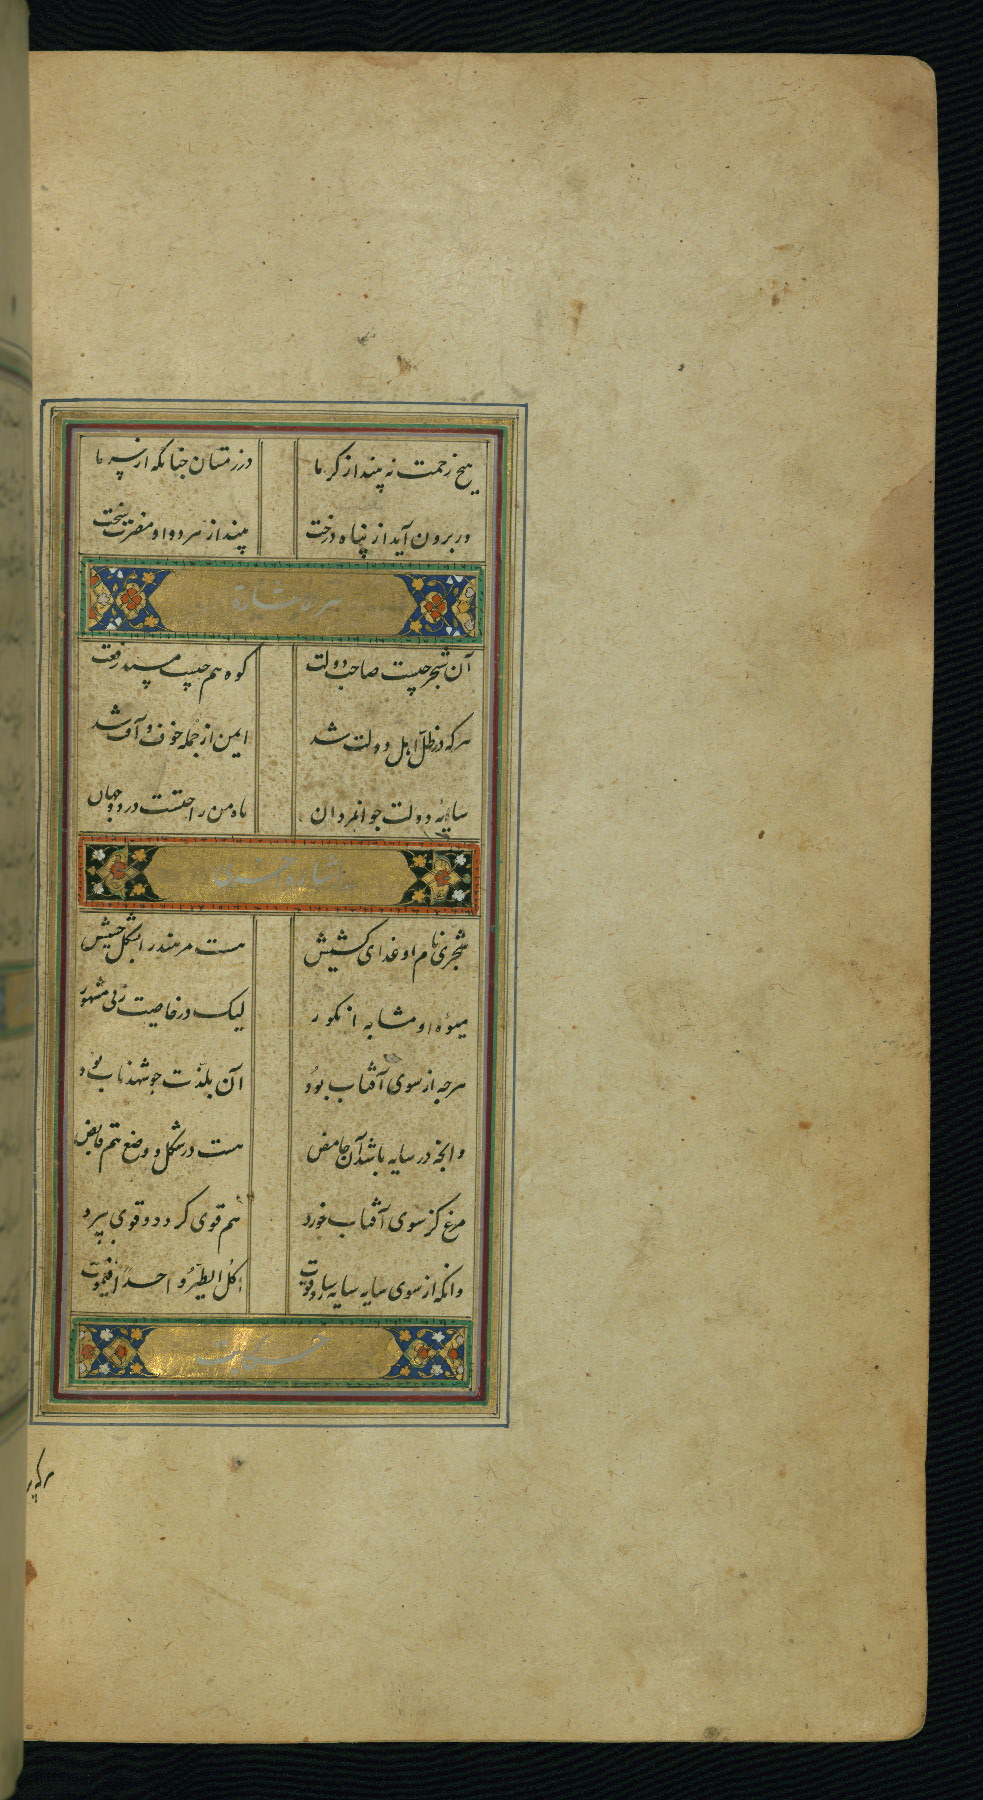 هیچ زحمت نه بیند از گرما در زمستان چنانکه از سرما
ور برون آید از پناه درخت بیند از هر دو او مضرت سخت
آن شجر چیست صاحب دولت کوه هم چیست مسند رفعت
هرکه در ظل اهل دولت شد ایمن از جمله خوف و آفت شد
سایهٔ دولت جوانمردان ماه من راحتست در دو جهان
اشارة
شجری نام او غدای کشیش هست مر هند را بشکل حشیش
میوهٔ او مشابه انکور لیک در خاصیت زبی مشهور
هرچه از سوی آفتاب بود آن بلذت چو شهد ناب بود
وانچه در سایه باشد آن حامض هست در شکل و وضع هم قابض
مرغ کز سوی آفتاب خورد هم قوی گردد و قوی بپرد
وانکه از سوی سایه سایه اکل الطیر واحدا فیموت
حکایت
هرکه